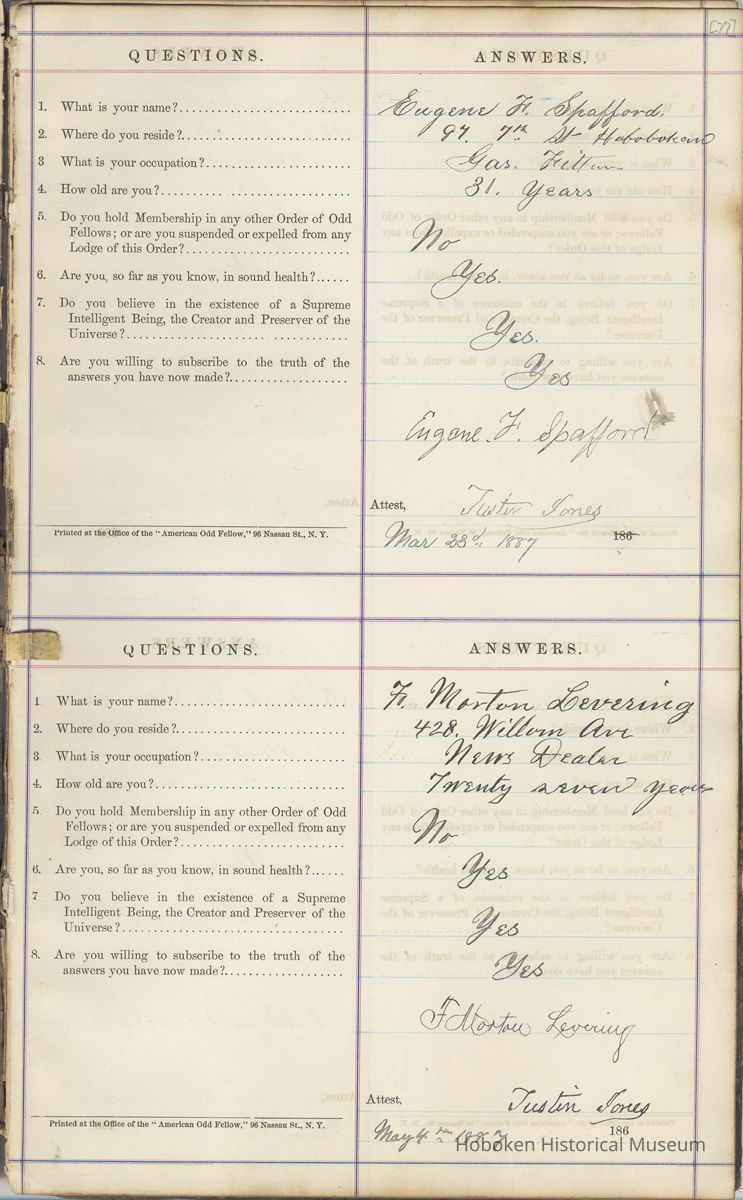 [77]
QUESTIONS.
ANSWERS.
1. What is your name?
Eugene F. Spafford.
2. Where do you reside?
97. 7th St Hobobokeen
3 What is your occupation?
Gas. Fitter
4. How old are you?
31. Years
5. Do you hold Membership in any other Order of Odd
Fellows; or are you suspended or expelled from any
Lodge of this Order?
No
6. Are you, so far as you know, in sound health?
Yes.
7. Do you believe in the existence of a Supreme
Intelligent Being, the Creator and Preserver of the
Universe?
Yes.
8. Are you willing to subscribe to the truth of the
answers you have now made?
Yes
Eugene. F. Spafford
Attest,
Justin Jones
Printed at the Office of the "American Odd Fellow," 96 Nassau St., N. Y.
Mar 23d 1887
186
QUESTIONS.
ANSWERS.
1 What is your name?
F. Morton Levering
2. Where do you reside?
428. Willom Ave
3. What is your occupation?
News Dealer
4. How old are you?
Twenty seven years
5 Do you hold Membership in any other Order of Odd
Fellows; or are you suspended or expelled from any
Lodge of this Order?
No
6. Are you, so far as you know, in sound health?
Yes
7 Do you believe in the existence of a Supreme
Intelligent Being, the Creator and Preserver of the
Universe?
Yes
8. Are you willing to subscribe to the truth of the
answers you have now made?
Yes
F Morton Levering
Attest,
Justin Jones
Printed at the Office of the "American Odd Fellow," 96 Nassau St., N. Y.
May 4 1887
186
Hoboken Historical Museum